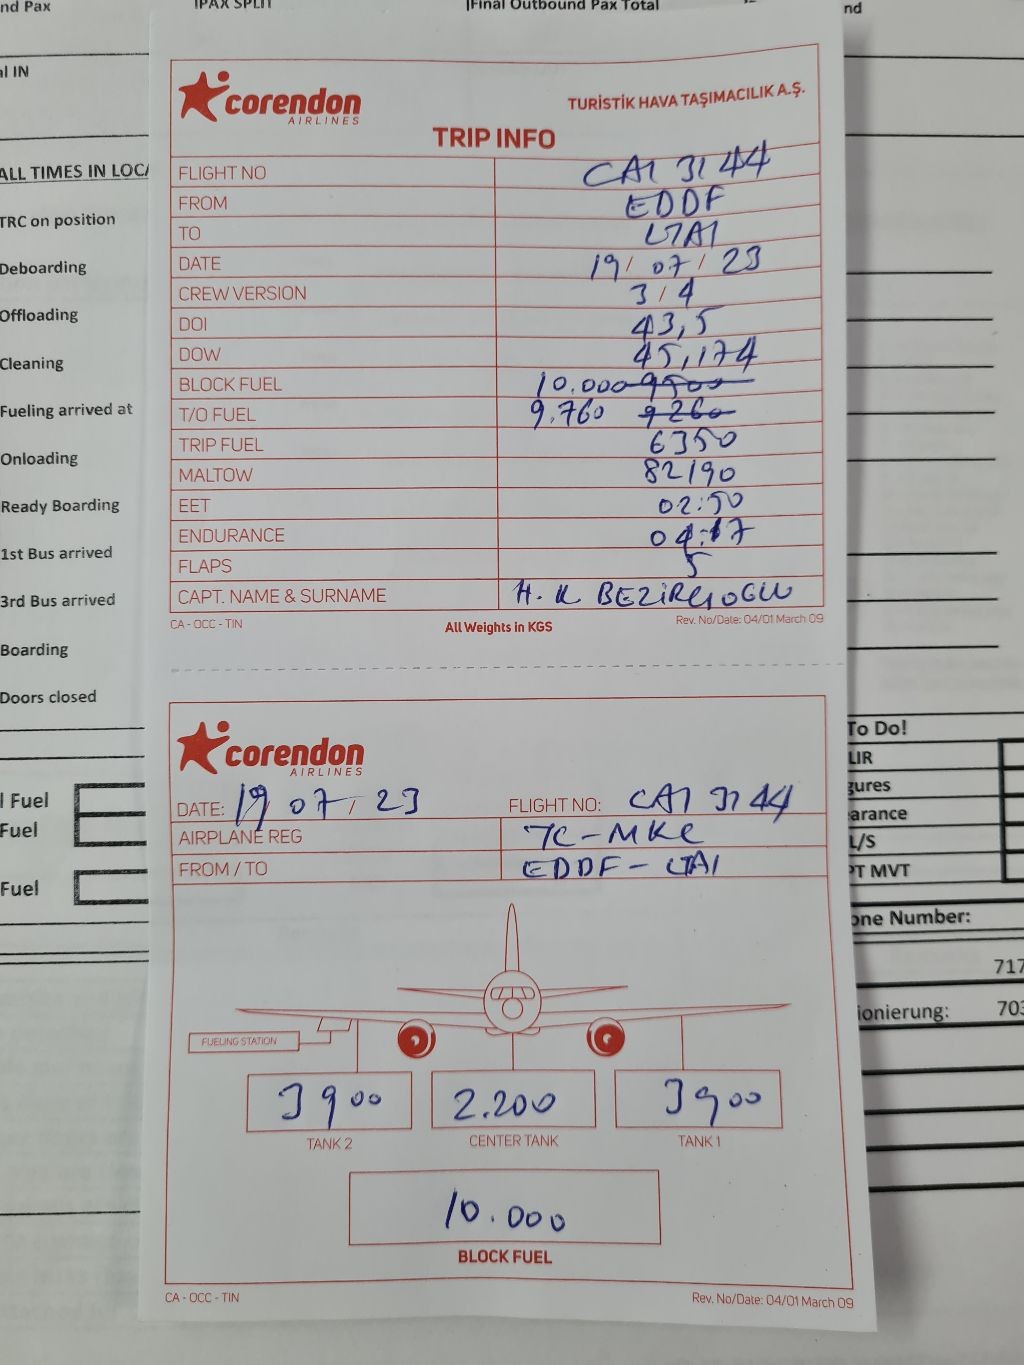 nd Pax
PAX SPLIT
Final Outbound Pax Total
nd
al IN
ALL TIMES IN LOCA
TRC on position
Deboarding
Offloading
Cleaning
Fueling arrived at
Onloading
Ready Boarding
1st Bus arrived
3rd Bus arrived
Boarding
Doors closed
l Fuel
Fuel
Fuel
corendon
AIRLINES
TURİSTİK HAVA TAŞIMACILIK A.Ş.
TRIP INFO
FLIGHT NO CAI 3144
FROM EDDF
TO LTAI
DATE 19/07/23
CREW VERSION 3/4
DOI 43,5
DOW 45,174
BLOCK FUEL 10.000 9500
T/O FUEL 9.760 9260
TRIP FUEL 6350
MALTOW 82190
EET 02:50
ENDURANCE 04:17
FLAPS 5
CAPT. NAME & SURNAME H. K BEZİRCİOGLU
CA - OCC - TIN
All Weights in KGS
Rev. No/Date: 04/01 March 09
corendon
AIRLINES
DATE: 19/07/23 FLIGHT NO: CAI 3144
AIRPLANE REG TC-MKC
FROM / TO EDDF - LTAI
FUELING STATION
3900 2.200 3900
TANK 2 CENTER TANK TANK 1
10.000
BLOCK FUEL
CA - OCC - TIN
Rev. No/Date: 04/01 March 09
To Do!
LIR
gures
earance
L/S
PT MVT
one Number:
717
ionierung: 703